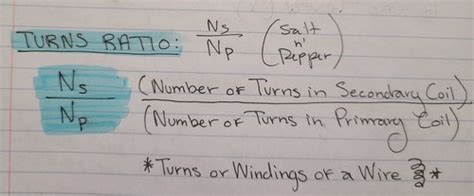 TURNS RATIO: Ns/Np (Salt n' Pepper)
Ns/Np (Number of Turns in Secondary Coil)/(Number of Turns in Primary Coil)
*Turns or Windings of a Wire *